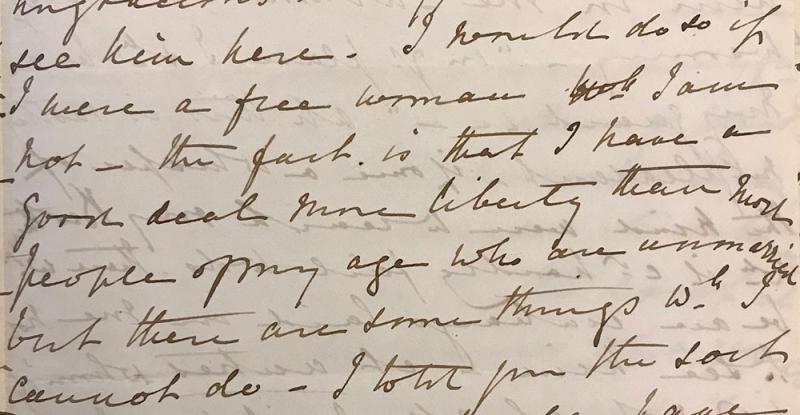 see him here - I would do so if
I were a free woman wh I am
not - the fact is that I have a
good deal more liberty than most
people of my age who are unmarried
but there are some things wh I
cannot do - I told you the sort